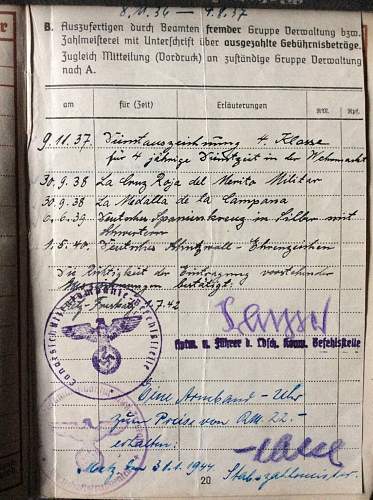 8.11.36 – 7.8.37
B. Auszufertigen durch Beamten fremder Gruppe Verwaltung bzw.
Zahlmeisterei mit Unterschrift über ausgezahlte Gebührnisbeträge.
Zugleich Mitteilung (Vordruck) an zuständige Gruppe Verwaltung
nach A.
am für (Zeit) Erläuterungen RM. Rpf.
9.11.37 Dienstauszeichnung 4. Klasse
für 4 jährige Dienstzeit in der Wehrmacht
30.9.38 La Cruz Roja del Merito Militar
30.9.38 La Medalla de la Campana
6.6.39 Deutsches Spanienkreuz in Silber mit
Schwertern
1.5.40. Deutsches Schutzwall-Ehrenzeichen
Die Richtigkeit der Eintragung vorstehender
bestätigt:
1.7.42
Hptm. u. Führer d. Ldsch. Komp. Befehlsstelle
Eine Armband-Uhr
zum Preise von RM. 22.-
erhalten:
Metz, den 31.1.1944. Stabszahlmeister.
20